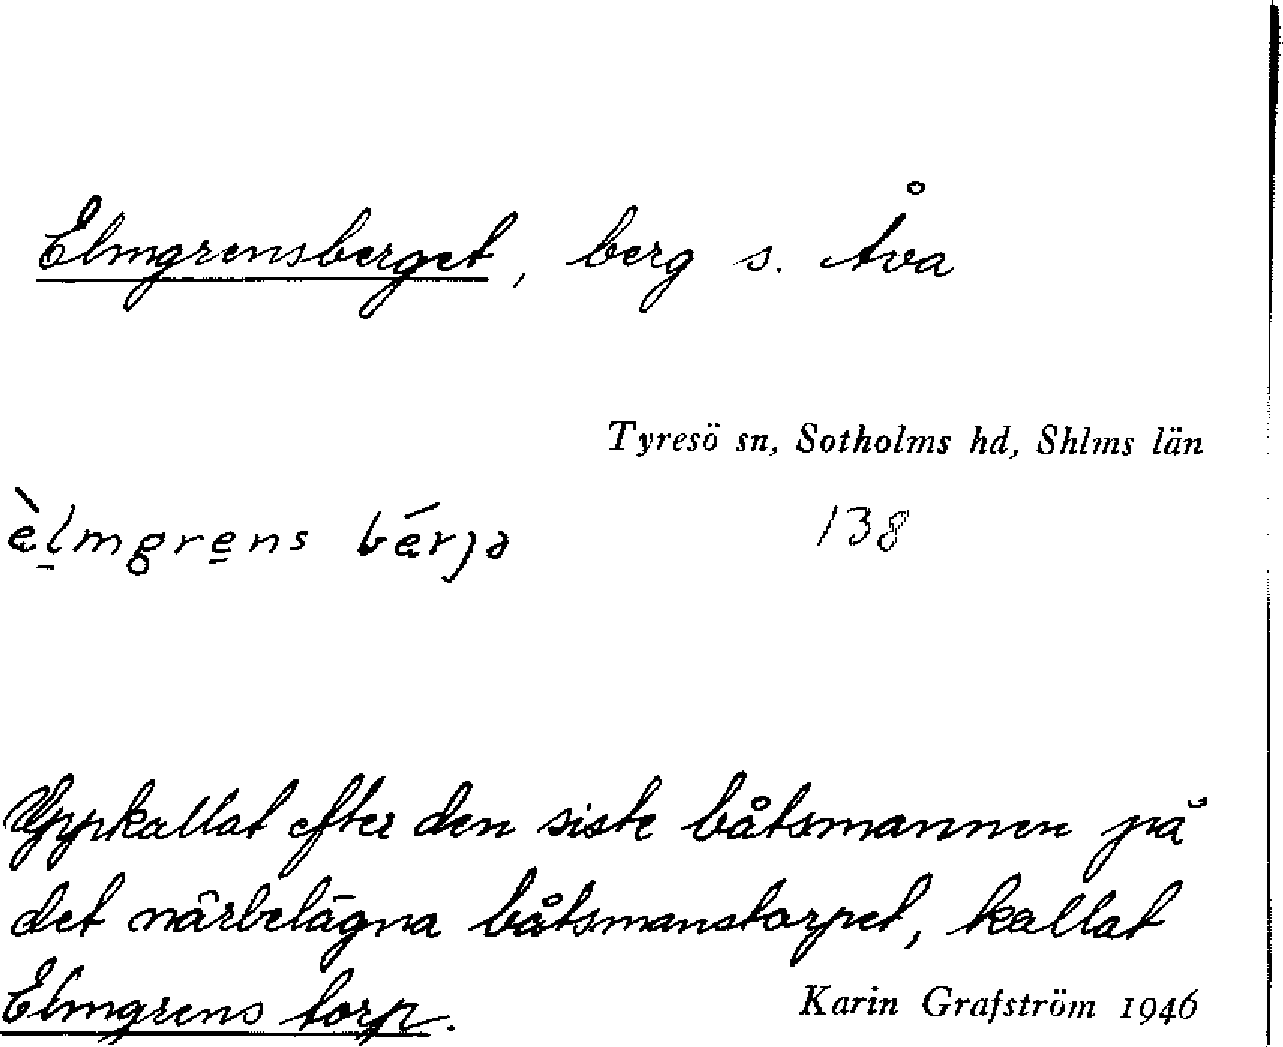 Elmgrensberget, berg s. Åva
Tyresö sn, Sotholms hd, Shlms län
èlmgrens bérja 138
Uppkallat efter den siste båtsmannen på
det närbelägna båtsmanstorpet, kallat
Elmgrens torp.
Karin Grafström 1946